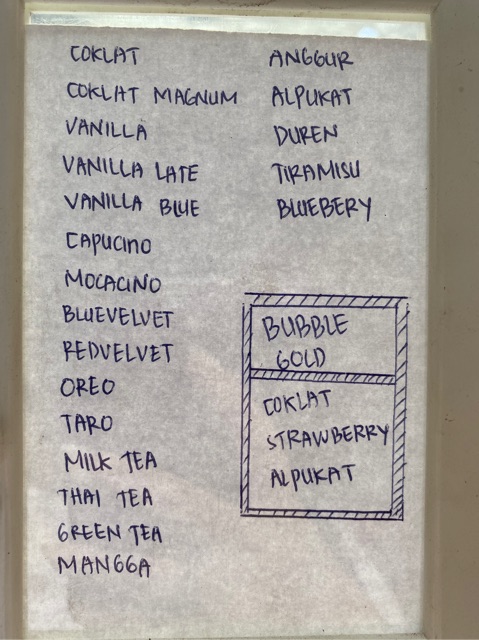 COKLAT
COKLAT MAGNUM
VANILLA
VANILLA LATE
VANILLA BLUE
CAPUCINO
MOCACINO
BLUEVELVET
REDVELVET
OREO
TARO
MILK TEA
THAI TEA
GREEN TEA
MANGGA
ANGGUR
ALPUKAT
DUREN
TIRAMISU
BLUEBERY
BUBBLE
GOLD
COKLAT
STRAWBERRY
ALPUKAT